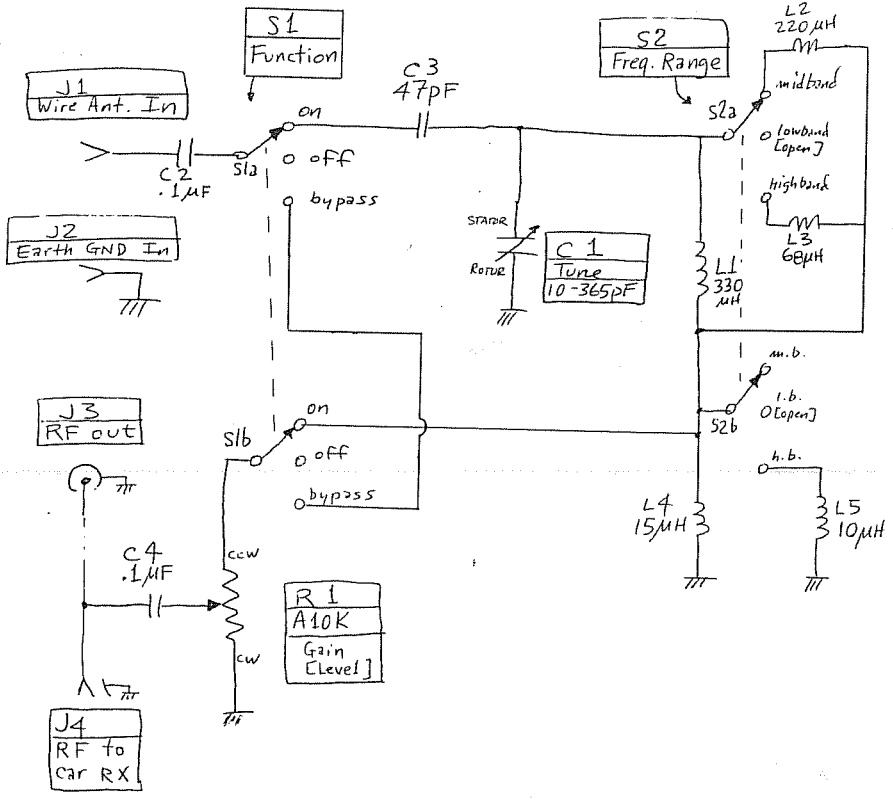 S1
Function
J1
Wire Ant. In
C2
.1µF
S1a
on
off
bypass
J2
Earth GND In
C3
47pF
S2
Freq. Range
L2
220µH
S2a
midband
lowband
[open]
highband
L3
68µH
STATOR
ROTOR
C1
Tune
10-365pF
L1
330
µH
m.b.
l.b.
[open]
S2b
h.b.
J3
RF out
S1b
on
off
bypass
L4
15µH
L5
10µH
C4
.1µF
ccw
cw
R1
A10K
Gain
[Level]
J4
RF to
car RX